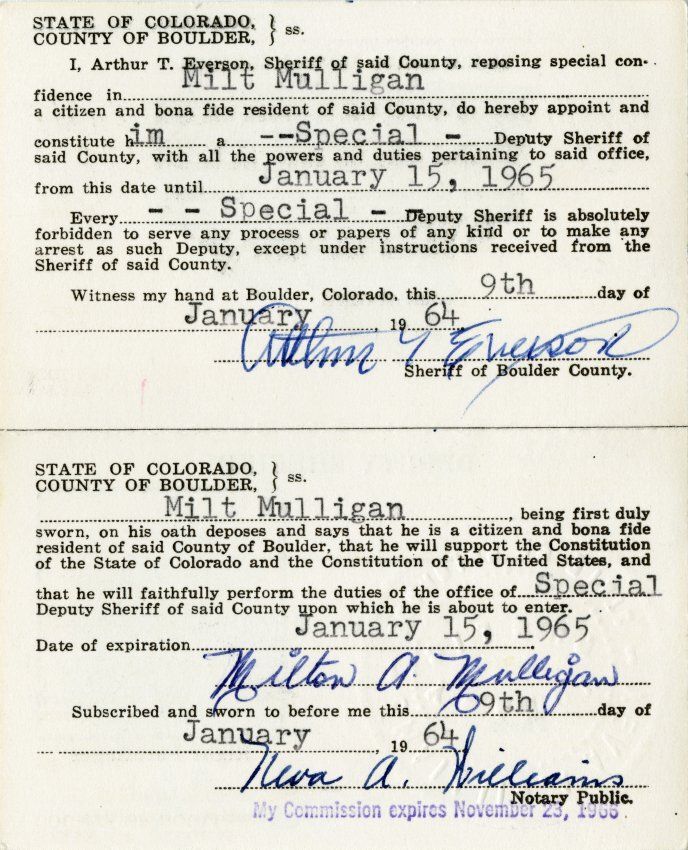 STATE OF COLORADO, } ss.
COUNTY OF BOULDER,
I, Arthur T. Everson, Sheriff of said County, reposing special con-
fidence in Milt Mulligan
a citizen and bona fide resident of said County, do hereby appoint and
constitute him a --Special - Deputy Sheriff of
said County, with all the powers and duties pertaining to said office,
from this date until January 15, 1965
Every - - Special - Deputy Sheriff is absolutely
forbidden to serve any process or papers of any kind or to make any
arrest as such Deputy, except under instructions received from the
Sheriff of said County.
Witness my hand at Boulder, Colorado, this 9th day of
January, 1964
Arthur T Everson
Sheriff of Boulder County.
STATE OF COLORADO, } ss.
COUNTY OF BOULDER,
Milt Mulligan, being first duly
sworn, on his oath deposes and says that he is a citizen and bona fide
resident of said County of Boulder, that he will support the Constitution
of the State of Colorado and the Constitution of the United States, and
that he will faithfully perform the duties of the office of Special
Deputy Sheriff of said County upon which he is about to enter.
Date of expiration January 15, 1965
Milton A. Mulligan
Subscribed and sworn to before me this 9th day of
January, 1964.
Neva A. Williams
Notary Public.
My Commission expires November 23,